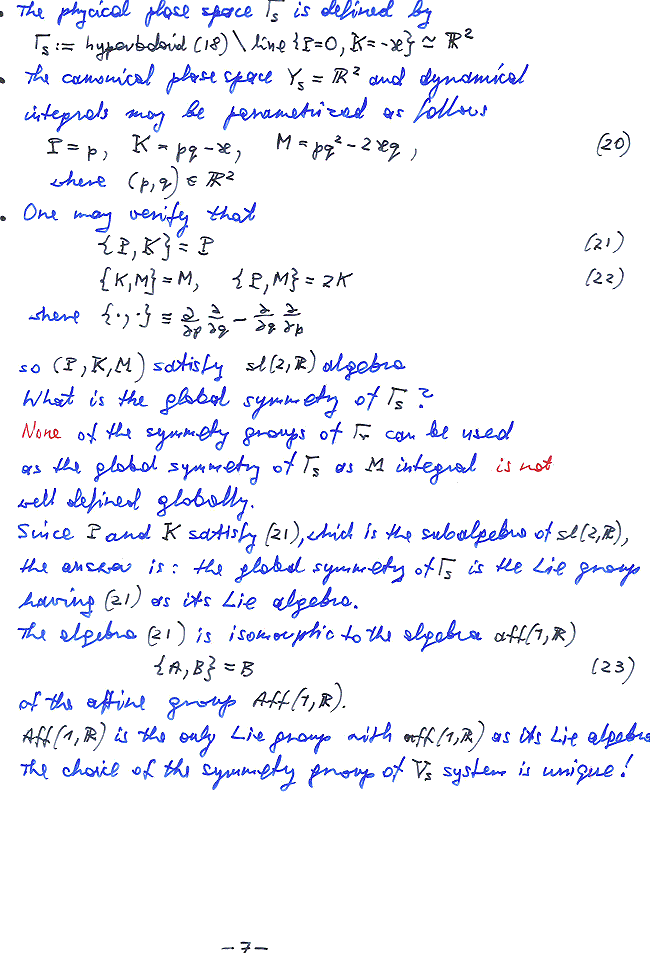 • The physical phase space Γₛ is defined by
Γₛ := hyperboloid (18) \ line {P=0, K=-ϰ} ≃ ℝ²
• The canonical phase space Yₛ = ℝ² and dynamical
integrals may be parametrized as follows
P = p, K = pq - ϰ, M = pq² - 2ϰq , (20)
where (p,q) ∈ ℝ²
• One may verify that
{P,K} = P (21)
{K,M} = M, {P,M} = 2K (22)
where {·,·} ≡ ∂/∂p ∂/∂q - ∂/∂q ∂/∂p
so (P,K,M) satisfy sl(2,ℝ) algebra
What is the global symmetry of Γₛ ?
None of the symmetry groups of Γ can be used
as the global symmetry of Γₛ as M integral is not
well defined globally.
Since P and K satisfy (21), which is the subalgebra of sl(2,ℝ),
the answer is: the global symmetry of Γₛ is the Lie group
having (21) as its Lie algebra.
The algebra (21) is isomorphic to the algebra aff(1,ℝ)
{A,B} = B (23)
of the affine group Aff(1,ℝ).
Aff(1,ℝ) is the only Lie group with aff(1,ℝ) as its Lie algebra
The choice of the symmetry group of Vₛ system is unique!
-7-